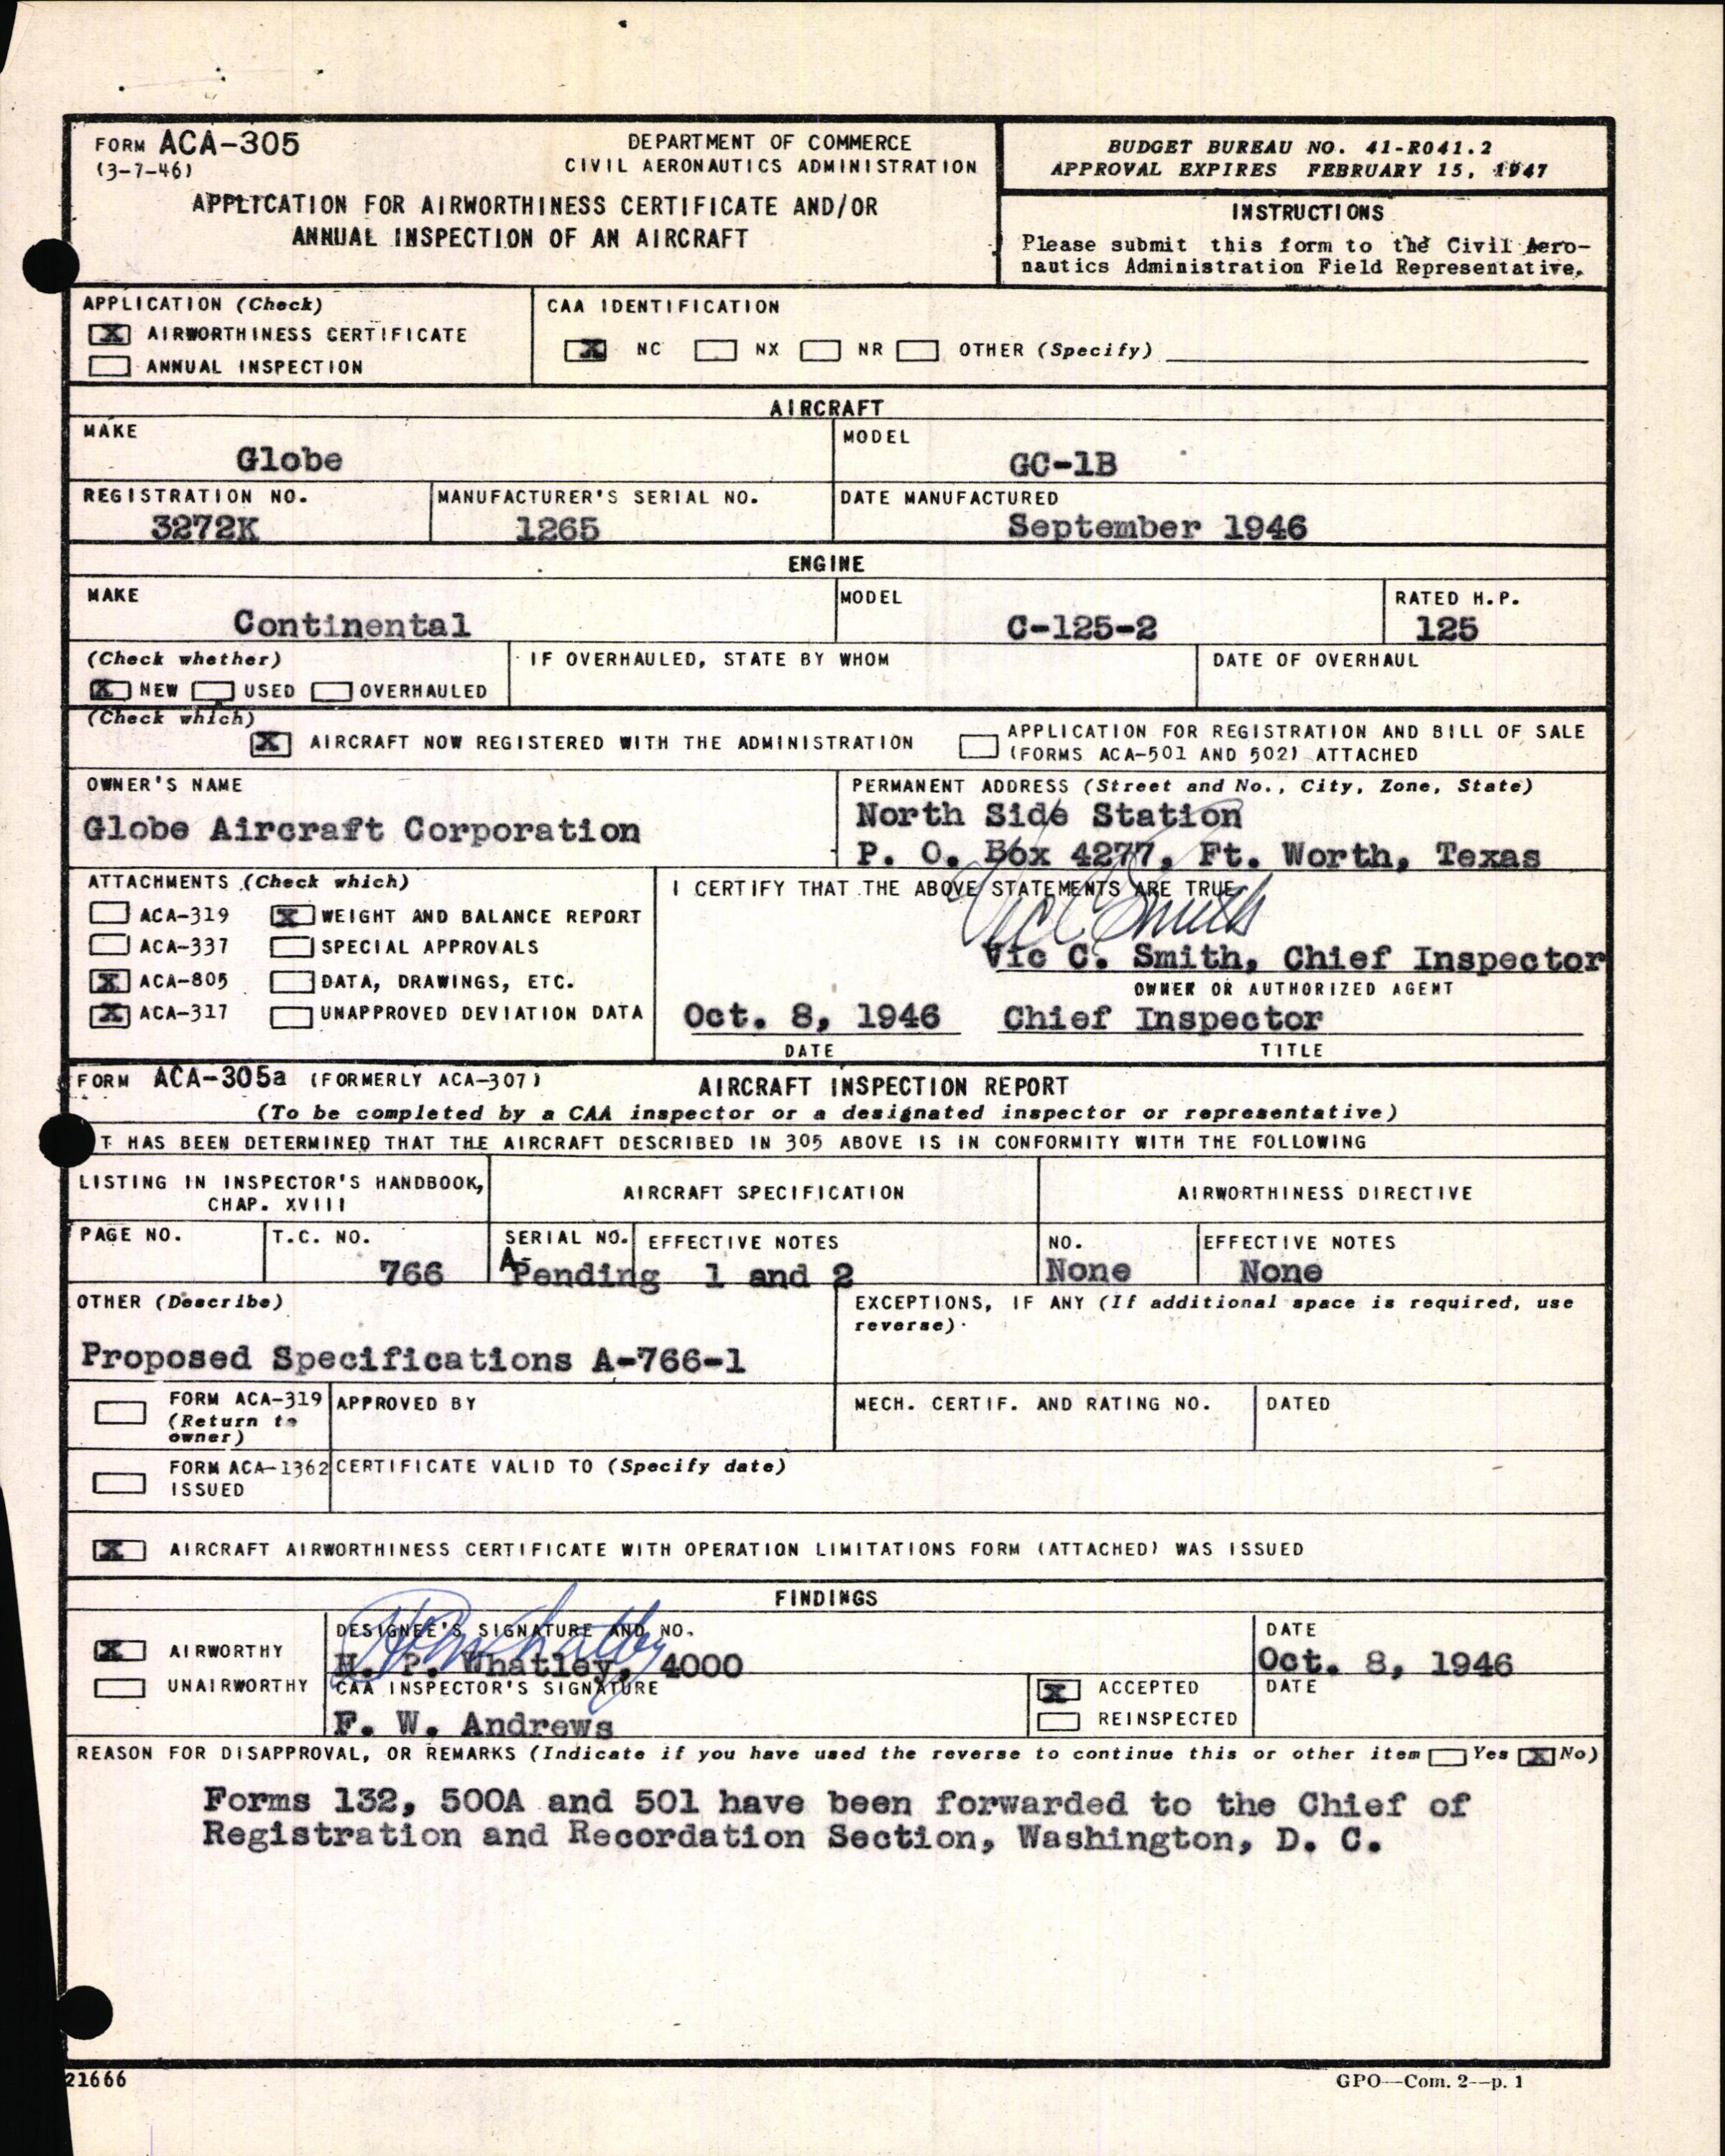 FORM ACA-305
(3-7-46)
DEPARTMENT OF COMMERCE
CIVIL AERONAUTICS ADMINISTRATION
APPLICATION FOR AIRWORTHINESS CERTIFICATE AND/OR
ANNUAL INSPECTION OF AN AIRCRAFT
BUDGET BUREAU NO. 41-R041.2
APPROVAL EXPIRES FEBRUARY 15, 1947
INSTRUCTIONS
Please submit this form to the Civil Aero-
nautics Administration Field Representative.
APPLICATION (Check)
X AIRWORTHINESS CERTIFICATE
ANNUAL INSPECTION
CAA IDENTIFICATION
X NC NX NR OTHER (Specify)
AIRCRAFT
MAKE
Globe
MODEL
GC-1B
REGISTRATION NO.
3272K
MANUFACTURER'S SERIAL NO.
1265
DATE MANUFACTURED
September 1946
ENGINE
MAKE
Continental
MODEL
C-125-2
RATED H.P.
125
(Check whether)
X NEW USED OVERHAULED
IF OVERHAULED, STATE BY WHOM
DATE OF OVERHAUL
(Check which)
X AIRCRAFT NOW REGISTERED WITH THE ADMINISTRATION
APPLICATION FOR REGISTRATION AND BILL OF SALE
(FORMS ACA-501 AND 502) ATTACHED
OWNER'S NAME
Globe Aircraft Corporation
PERMANENT ADDRESS (Street and No., City, Zone, State)
North Side Station
P. O. Box 4277, Ft. Worth, Texas
ATTACHMENTS (Check which)
ACA-319 X WEIGHT AND BALANCE REPORT
ACA-337 SPECIAL APPROVALS
X ACA-805 DATA, DRAWINGS, ETC.
X ACA-317 UNAPPROVED DEVIATION DATA
I CERTIFY THAT THE ABOVE STATEMENTS ARE TRUE
Vic C Smith
Vic C. Smith, Chief Inspector
OWNER OR AUTHORIZED AGENT
Oct. 8, 1946 Chief Inspector
DATE TITLE
FORM ACA-305a (FORMERLY ACA-307)
AIRCRAFT INSPECTION REPORT
(To be completed by a CAA inspector or a designated inspector or representative)
T HAS BEEN DETERMINED THAT THE AIRCRAFT DESCRIBED IN 305 ABOVE IS IN CONFORMITY WITH THE FOLLOWING
LISTING IN INSPECTOR'S HANDBOOK,
CHAP. XVIII
AIRCRAFT SPECIFICATION
AIRWORTHINESS DIRECTIVE
PAGE NO.
T.C. NO.
766
SERIAL NO.
A-
Pending
EFFECTIVE NOTES
1 and 2
NO.
None
EFFECTIVE NOTES
None
OTHER (Describe)
Proposed Specifications A-766-1
EXCEPTIONS, IF ANY (If additional space is required, use
reverse).
FORM ACA-319
(Return to
owner)
APPROVED BY
MECH. CERTIF. AND RATING NO.
DATED
FORM ACA-1362
ISSUED
CERTIFICATE VALID TO (Specify date)
X AIRCRAFT AIRWORTHINESS CERTIFICATE WITH OPERATION LIMITATIONS FORM (ATTACHED) WAS ISSUED
FINDINGS
X AIRWORTHY
UNAIRWORTHY
DESIGNEE'S SIGNATURE AND NO.
H P Whatley
H. P. Whatley, 4000
DATE
Oct. 8, 1946
CAA INSPECTOR'S SIGNATURE
F. W. Andrews
X ACCEPTED
REINSPECTED
DATE
REASON FOR DISAPPROVAL, OR REMARKS (Indicate if you have used the reverse to continue this or other item Yes X No)
Forms 132, 500A and 501 have been forwarded to the Chief of
Registration and Recordation Section, Washington, D. C.
21666
GPO—Com. 2--p. 1